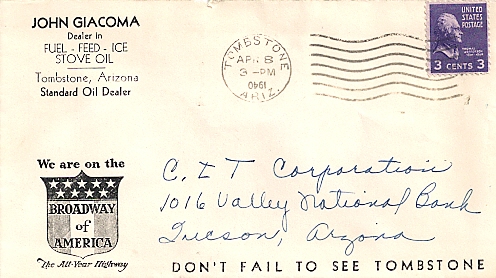 JOHN GIACOMA
Dealer in
FUEL - FEED - ICE
STOVE OIL
Tombstone, Arizona
Standard Oil Dealer
TOMBSTONE
APR 8
3 - PM
1940
ARIZ.
UNITED STATES
POSTAGE
3 CENTS 3
We are on the
BROADWAY
of
AMERICA
The All-Year Highway
C. I T Corporation
1016 Valley National Bank
Tucson, Arizona
DON'T FAIL TO SEE TOMBSTONE